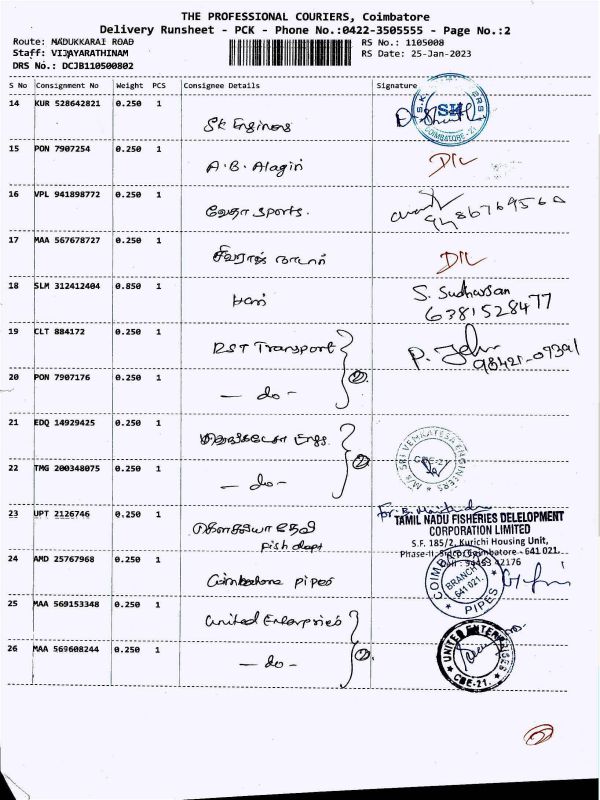 THE PROFESSIONAL COURIERS, Coimbatore
Delivery Runsheet - PCK - Phone No.:0422-3505555 - Page No.:2
Route: MADUKKARAI ROAD RS No.: 1105008
Staff: VIJAYARATHINAM RS Date: 25-Jan-2023
DRS No.: DCJB110500802
S No Consignment No Weight PCS Consignee Details Signature
14 KUR 528642821 0.250 1
SK Engineers
SK
COIMBATORE-21
15 PON 7907254 0.250 1
A.B. Alagiri
D/L
16 VPL 941898772 0.250 1
வேதா sports.
9486764560
17 MAA 567678727 0.250 1
D/L
18 SLM 312412404 0.850 1
S. Sudharsan
6381528477
19 CLT 884172 0.250 1
RST Transport
P. John
98421-09391
20 PON 7907176 0.250 1
- do - 2
21 EDQ 14929425 0.250 1
Engg.
M/S SRI VENKATESA ENGINEERS
CBE-21
22 TMG 200348075 0.250 1
- do - 2
23 UPT 2126746 0.250 1
Fish dept
TAMIL NADU FISHERIES DELELOPMENT
CORPORATION LIMITED
S.F. 185/2, Kurichi Housing Unit,
Phase-II, Sidco, Coimbatore - 641 021.
42176
24 AMD 25767968 0.250 1
Coimbatore pipes
COIMBATORE PIPES
BRANCH
641 021.
25 MAA 569153348 0.250 1
United Enterprises
UNITED ENTERPRISES
CBE-21.
26 MAA 569608244 0.250 1
- do - 2
2